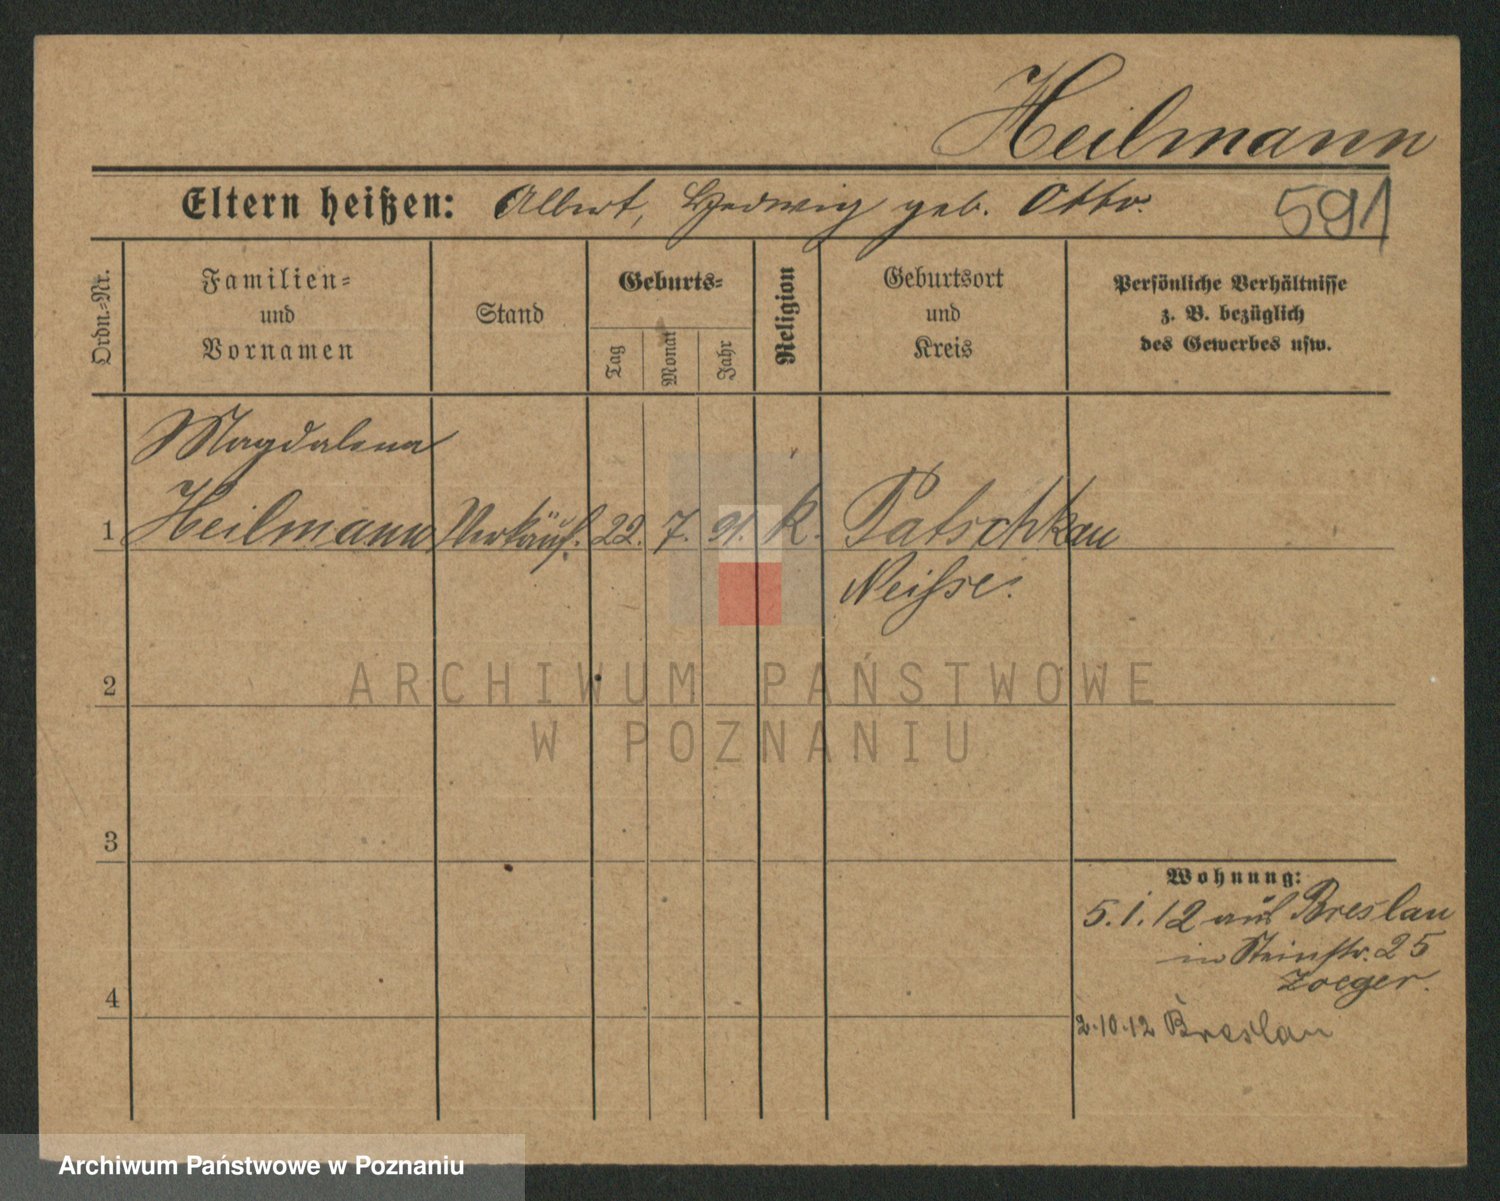 Heilmann
Eltern heißen: Albert, Hedwig geb. Otto.
591
Ordn.-Nr.
Familien-
und
Vornamen
Stand
Geburts-
Tag
Monat
Jahr
Religion
Geburtsort
und
Kreis
Persönliche Verhältnisse
z. B. bezüglich
des Gewerbes usw.
Magdalena
1 Heilmann Verkäuf. 22. 7. 91. k. Patschkau
Neisse.
2
ARCHIWUM PAŃSTWOWE
W POZNANIU
3
Wohnung:
5.1.12 aus Breslau
in Steinstr. 25
Zoeger.
4
2.10.12 Breslau
Archiwum Państwowe w Poznaniu